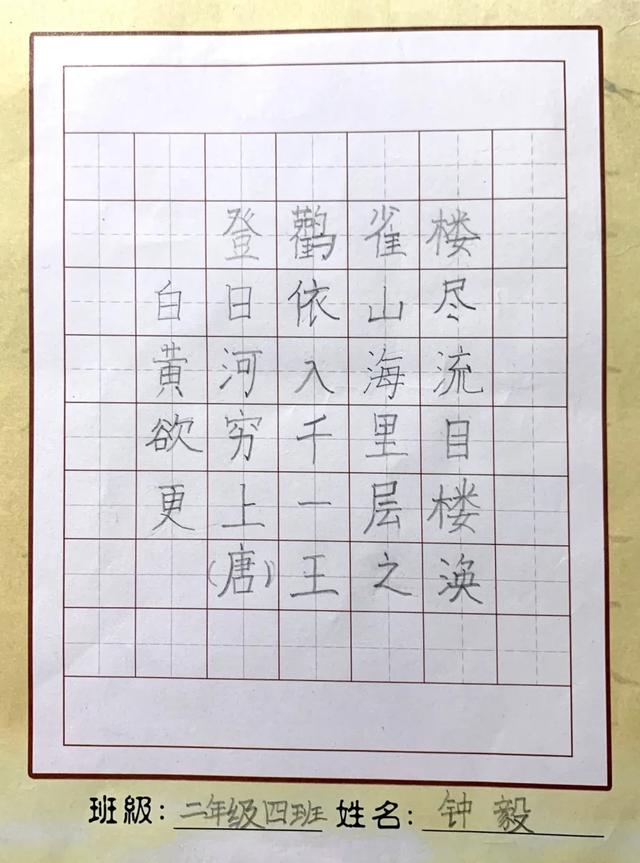 登鸛雀楼
白日依山尽
黄河入海流
欲穷千里目
更上一层楼
(唐)王之涣
班級:二年级四班 姓名:钟毅